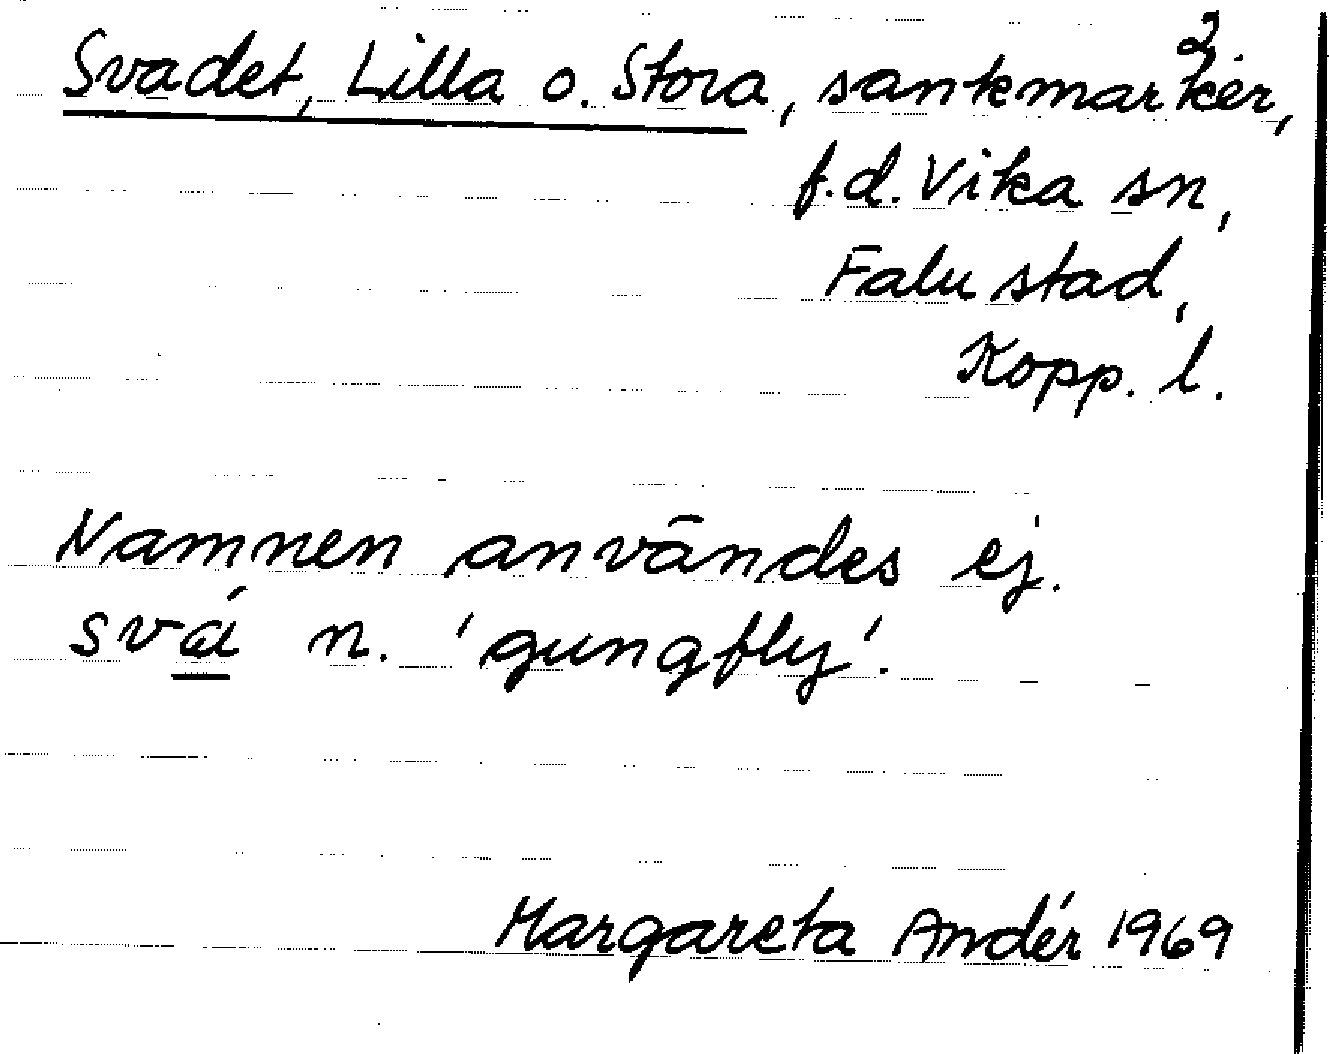 Svadet, Lilla o. Stora, sankmarker, 2
f.d. Vika sn,
Falu stad,
Kopp. l.
Namnen användes ej.
svá n. 'gungfly'.
Margareta Andér 1969